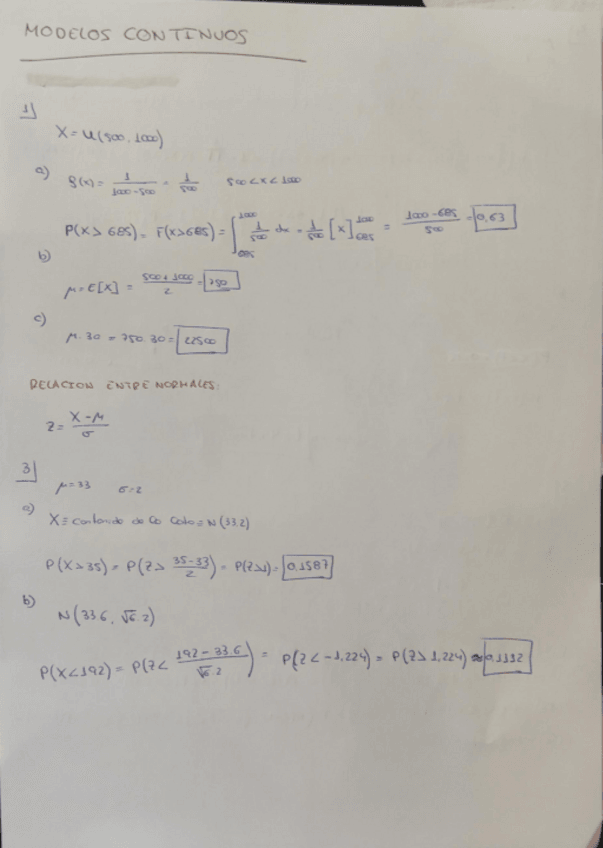 MODELOS CONTINUOS
1)
X = U(500, 1000)
a) f(x) = 1/(1000-500) = 1/500 500 < x < 1000
P(X > 685) = F(x>685) = ∫_{685}^{1000} 1/500 dx = 1/500 [x]_{685}^{1000} = (1000-685)/500 = 0,63
b)
μ = E[X] = (500+1000)/2 = 750
c)
μ·30 = 750·30 = 22500
RELACION ENTRE NORMALES:
Z = (X-μ)/σ
3)
μ=33 σ=2
a)
X ≡ contenido de Co Cola = N(33,2)
P(X>35) = P(Z > (35-33)/2) = P(Z>1) = 0,1587
b)
N(33·6, √6·2)
P(X<192) = P(Z < (192-33·6)/(√6·2)) = P(Z<-1,224) = P(Z>1,224) ≈ 0,1112